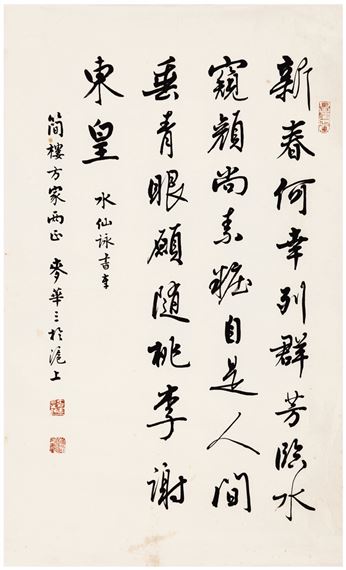 新春何幸列群芳臨水
窺顏尚素粧自是人間
垂青眼願隨桃李謝
東皇
水仙詠書奉
簡樓方家兩正 麥華三於滬上